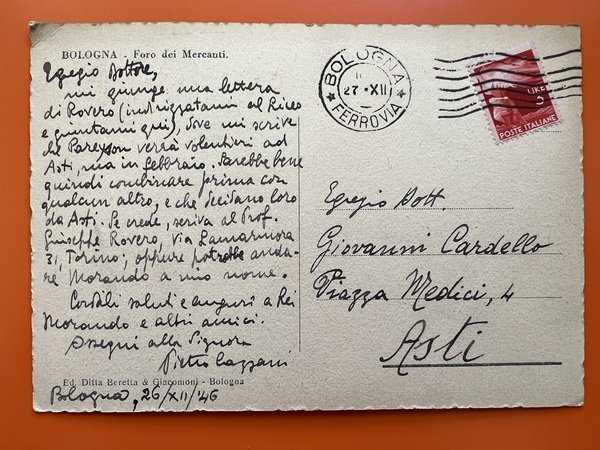 BOLOGNA - Foro dei Mercanti.
Egregio Dottore,
mi giunge una lettera
di Rovero (indirizzatami al Liceo
e giuntami qui), dove mi scrive
che Pareyson verrà volentieri ad
Asti, ma in febbraio. Sarebbe bene
quindi combinare prima con
qualcun altro, e che decidano loro
da Asti. Se crede, scriva al Prof.
Giuseppe Rovero, Via Lamarmora
31, Torino; oppure potrebbe anda-
re Morando a mio nome.
Cordiali saluti e auguri a Lei
Morando e altri amici.
Ossequi alla Signora
Pietro
Ed. Ditta Beretta & Giacomoni - Bologna
Bologna, 26/XII/'46
BOLOGNA
27 · XII
FERROVIA
LIRE
3
POSTE ITALIANE
Egregio Dott.
Giovanni Cardello
Piazza Medici, 4
Asti